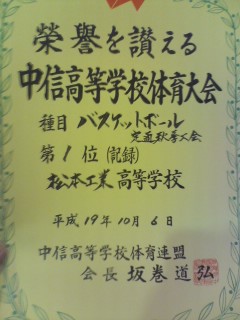 栄誉を讃える
中信高等学校体育大会
種目 バスケットボール
秋季大会
第1位(記録)
松本工業高等学校
平成19年10月6日
中信高等学校体育連盟
会長 坂巻道弘